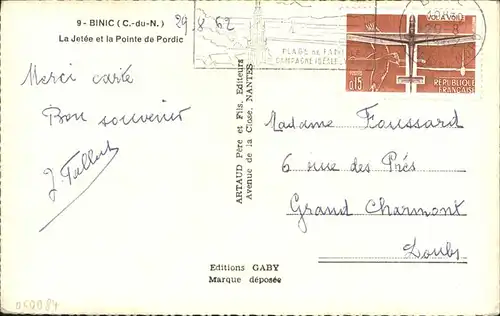 9 - BINIC (C.-du-N.)
29.8.62
La Jetée et la Pointe de Pordic
Merci carte
Bon souvenir
ARTAUD Père et Fils, Editeurs
Avenue de la Close, NANTES
PLAGE DE FAMILLE
CAMPAGNE IDÉALE
VOL A VOILE
RÉPUBLIQUE
FRANÇAISE
POSTES
0,15
Madame Foussard
6 rue des Prés
Grand Charmont
Doubs
Editions GABY
Marque déposée